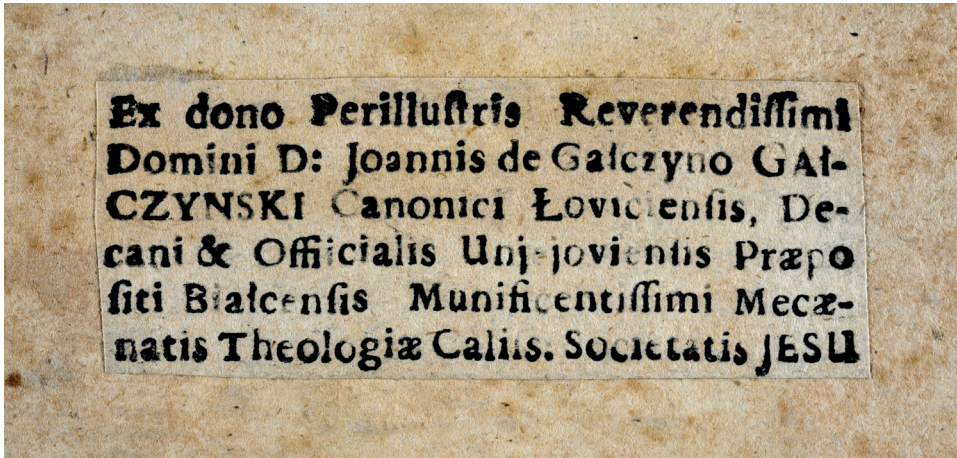 Ex dono Perilluſtris Reverendiſſimi
Domini D: Joannis de Gałczyno GAł-
CZYNSKI Canonici Łovicienſis, De-
cani & Officialis Unj-jovienſis Præpo
ſiti Białcenſis Munificentiſſimi Mecæ-
natis Theologiæ Caliſs. Societatis JESU